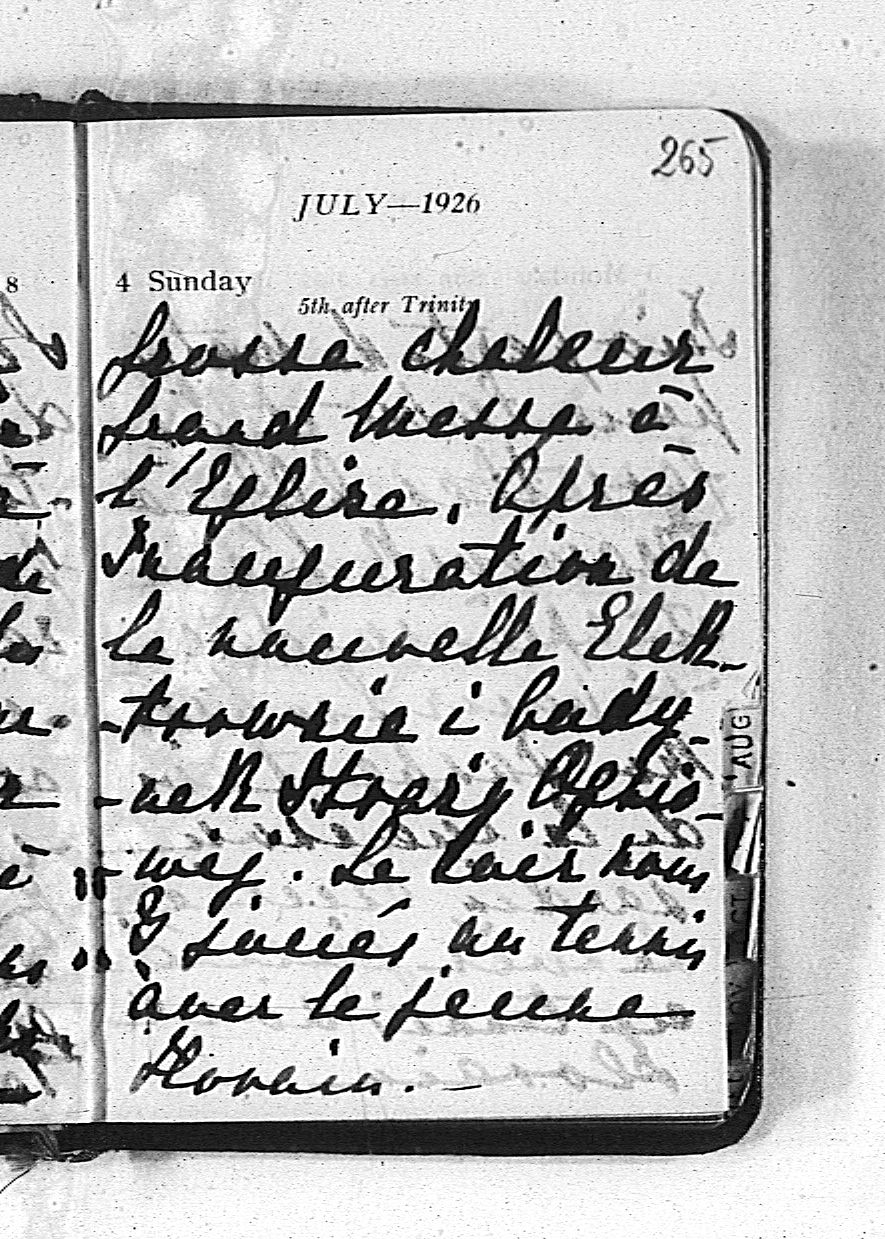 265
JULY—1926
4 Sunday
5th. after Trinity
Grosse chaleur
Grand Messe à
l'Eglise. Après
Inauguration de
la nouvelle Elek-
-trownie i budy-
-nek Straży Ognio-
-wej. Le soir nous
y joués au tennis
avec le jeune
AUG